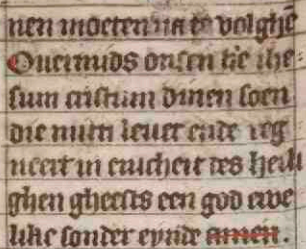 nen moeten na te volghē
Ouermids onsen hē ihe-
sum cristum dinen soen
die mitti leuet ende reg
neert in ewicheit des heili
ghen gheests een god ewe
like sonder eynde amen.